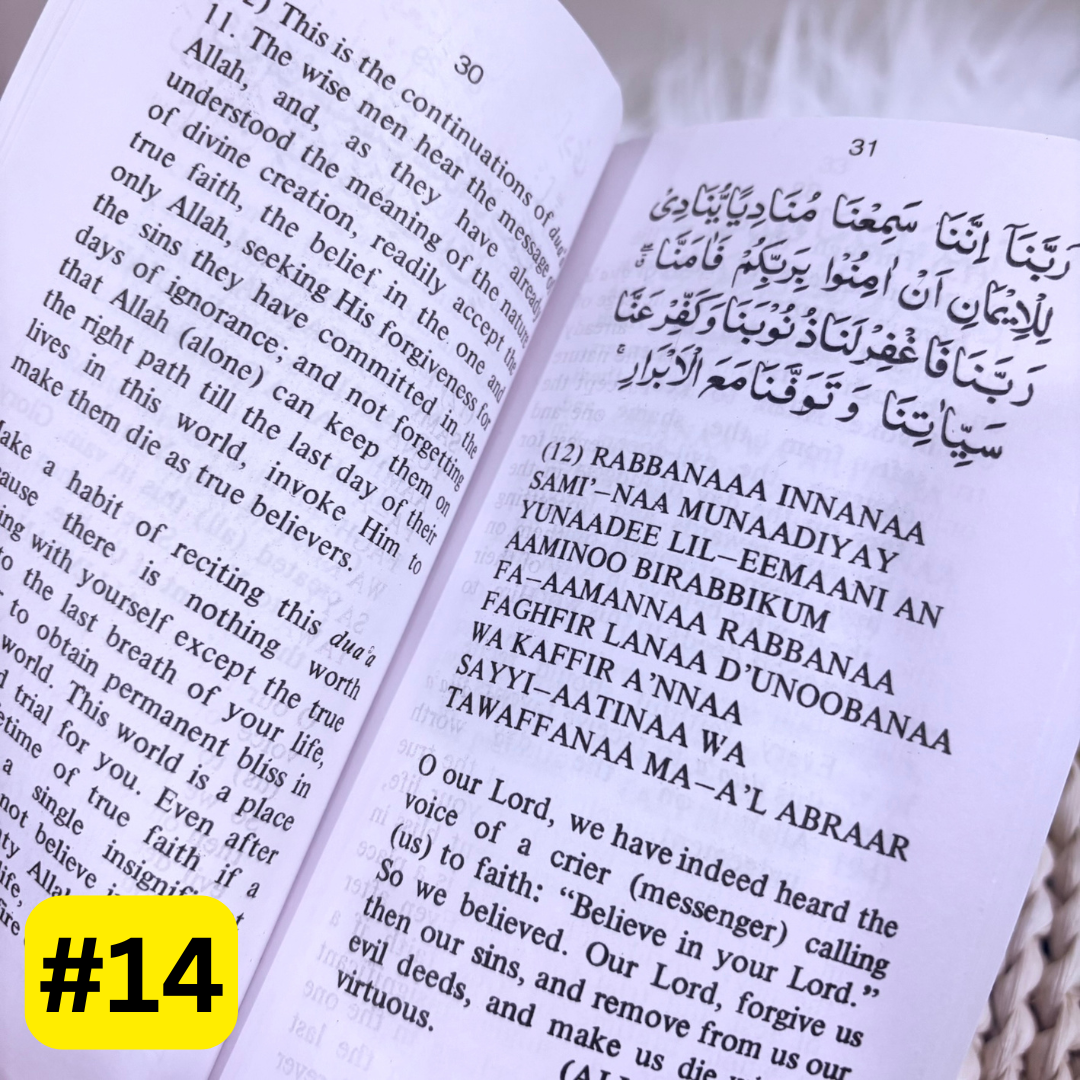 30
2) This is the continuations of dua'
11. The wise men hear the message of
Allah, and, as they have already
understood the meaning of the nature
of divine creation, readily accept the
true faith, the belief in the one and
only Allah, seeking His forgiveness for
the sins they have committed in the
days of ignorance; and not forgetting
that Allah (alone) can keep them on
the right path till the last day of their
lives in this world, invoke Him to
make them die as true believers.
Make a habit of reciting this dua'a
there is nothing worth
with yourself except the true
to the last breath of your life,
to obtain permanent bliss in
world. This world is a place
trial for you. Even after
of true faith if a
a single
not believe
#14
31
رَبَّنَآ اِنَّنَا سَمِعْنَا مُنَادِيًا يُّنَادِىْ
لِلْاِيْمَانِ اَنْ اٰمِنُوْا بِرَبِّكُمْ فَاٰمَنَّا ۖ
رَبَّنَا فَاغْفِرْ لَنَا ذُنُوْبَنَا وَكَفِّرْ عَنَّا
سَيِّاٰتِنَا وَتَوَفَّنَا مَعَ الْاَبْرَارِ ۚ
(12) RABBANAAA INNANAA
SAMI'–NAA MUNAADIYAY
YUNAADEE LIL–EEMAANI AN
AAMINOO BIRABBIKUM
FA–AAMANNAA RABBANAA
FAGHFIR LANAA D'UNOOBANAA
WA KAFFIR A'NNAA
SAYYI–AATINAA WA
TAWAFFANAA MA–A'L ABRAAR
O our Lord, we have indeed heard the
voice of a crier (messenger) calling
(us) to faith: “Believe in your Lord.”
So we believed. Our Lord, forgive us
then our sins, and remove from us our
evil deeds, and make us die
virtuous.